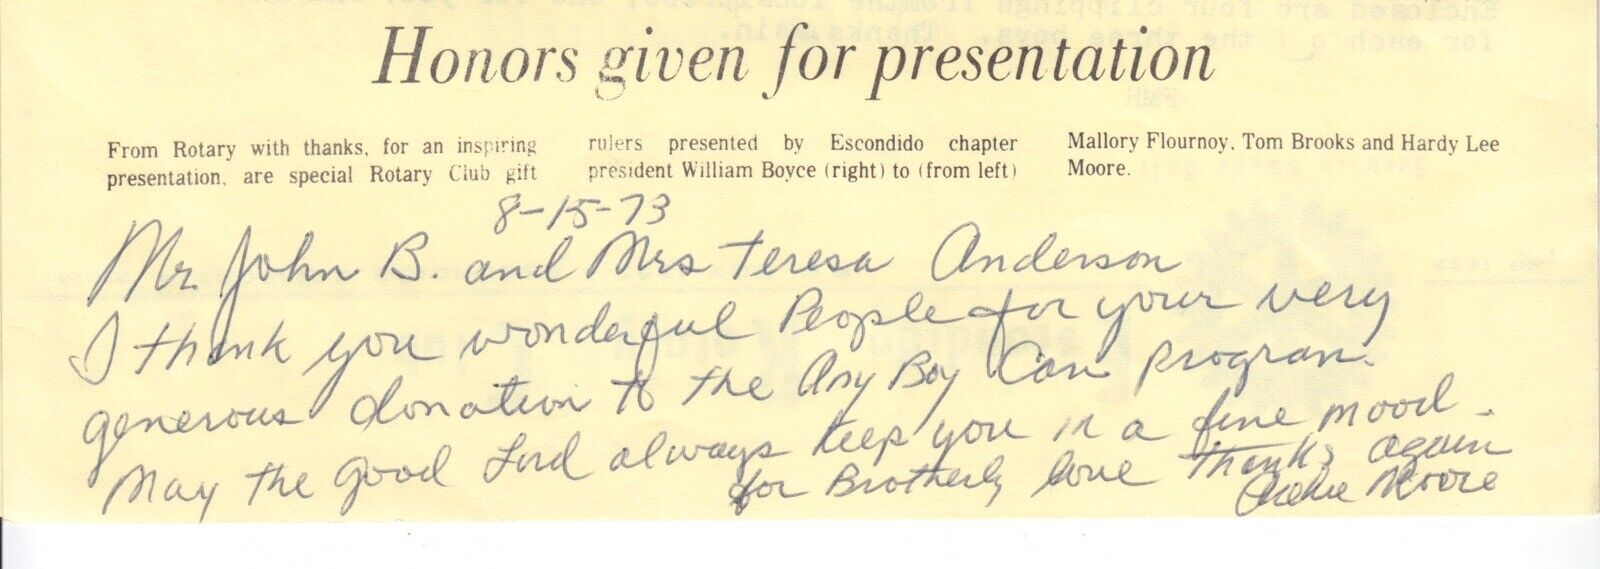 Honors given for presentation
From Rotary with thanks, for an inspiring
presentation, are special Rotary Club gift
rulers presented by Escondido chapter
president William Boyce (right) to (from left)
Mallory Flournoy, Tom Brooks and Hardy Lee
Moore.
8-15-73
Mr. John B. and Mrs Teresa Anderson
I thank you wonderful People for your very
generous donation to the Any Boy Can program.
May the good Lord always keep you in a fine mood.
for Brotherly love thanks again
Archie Moore